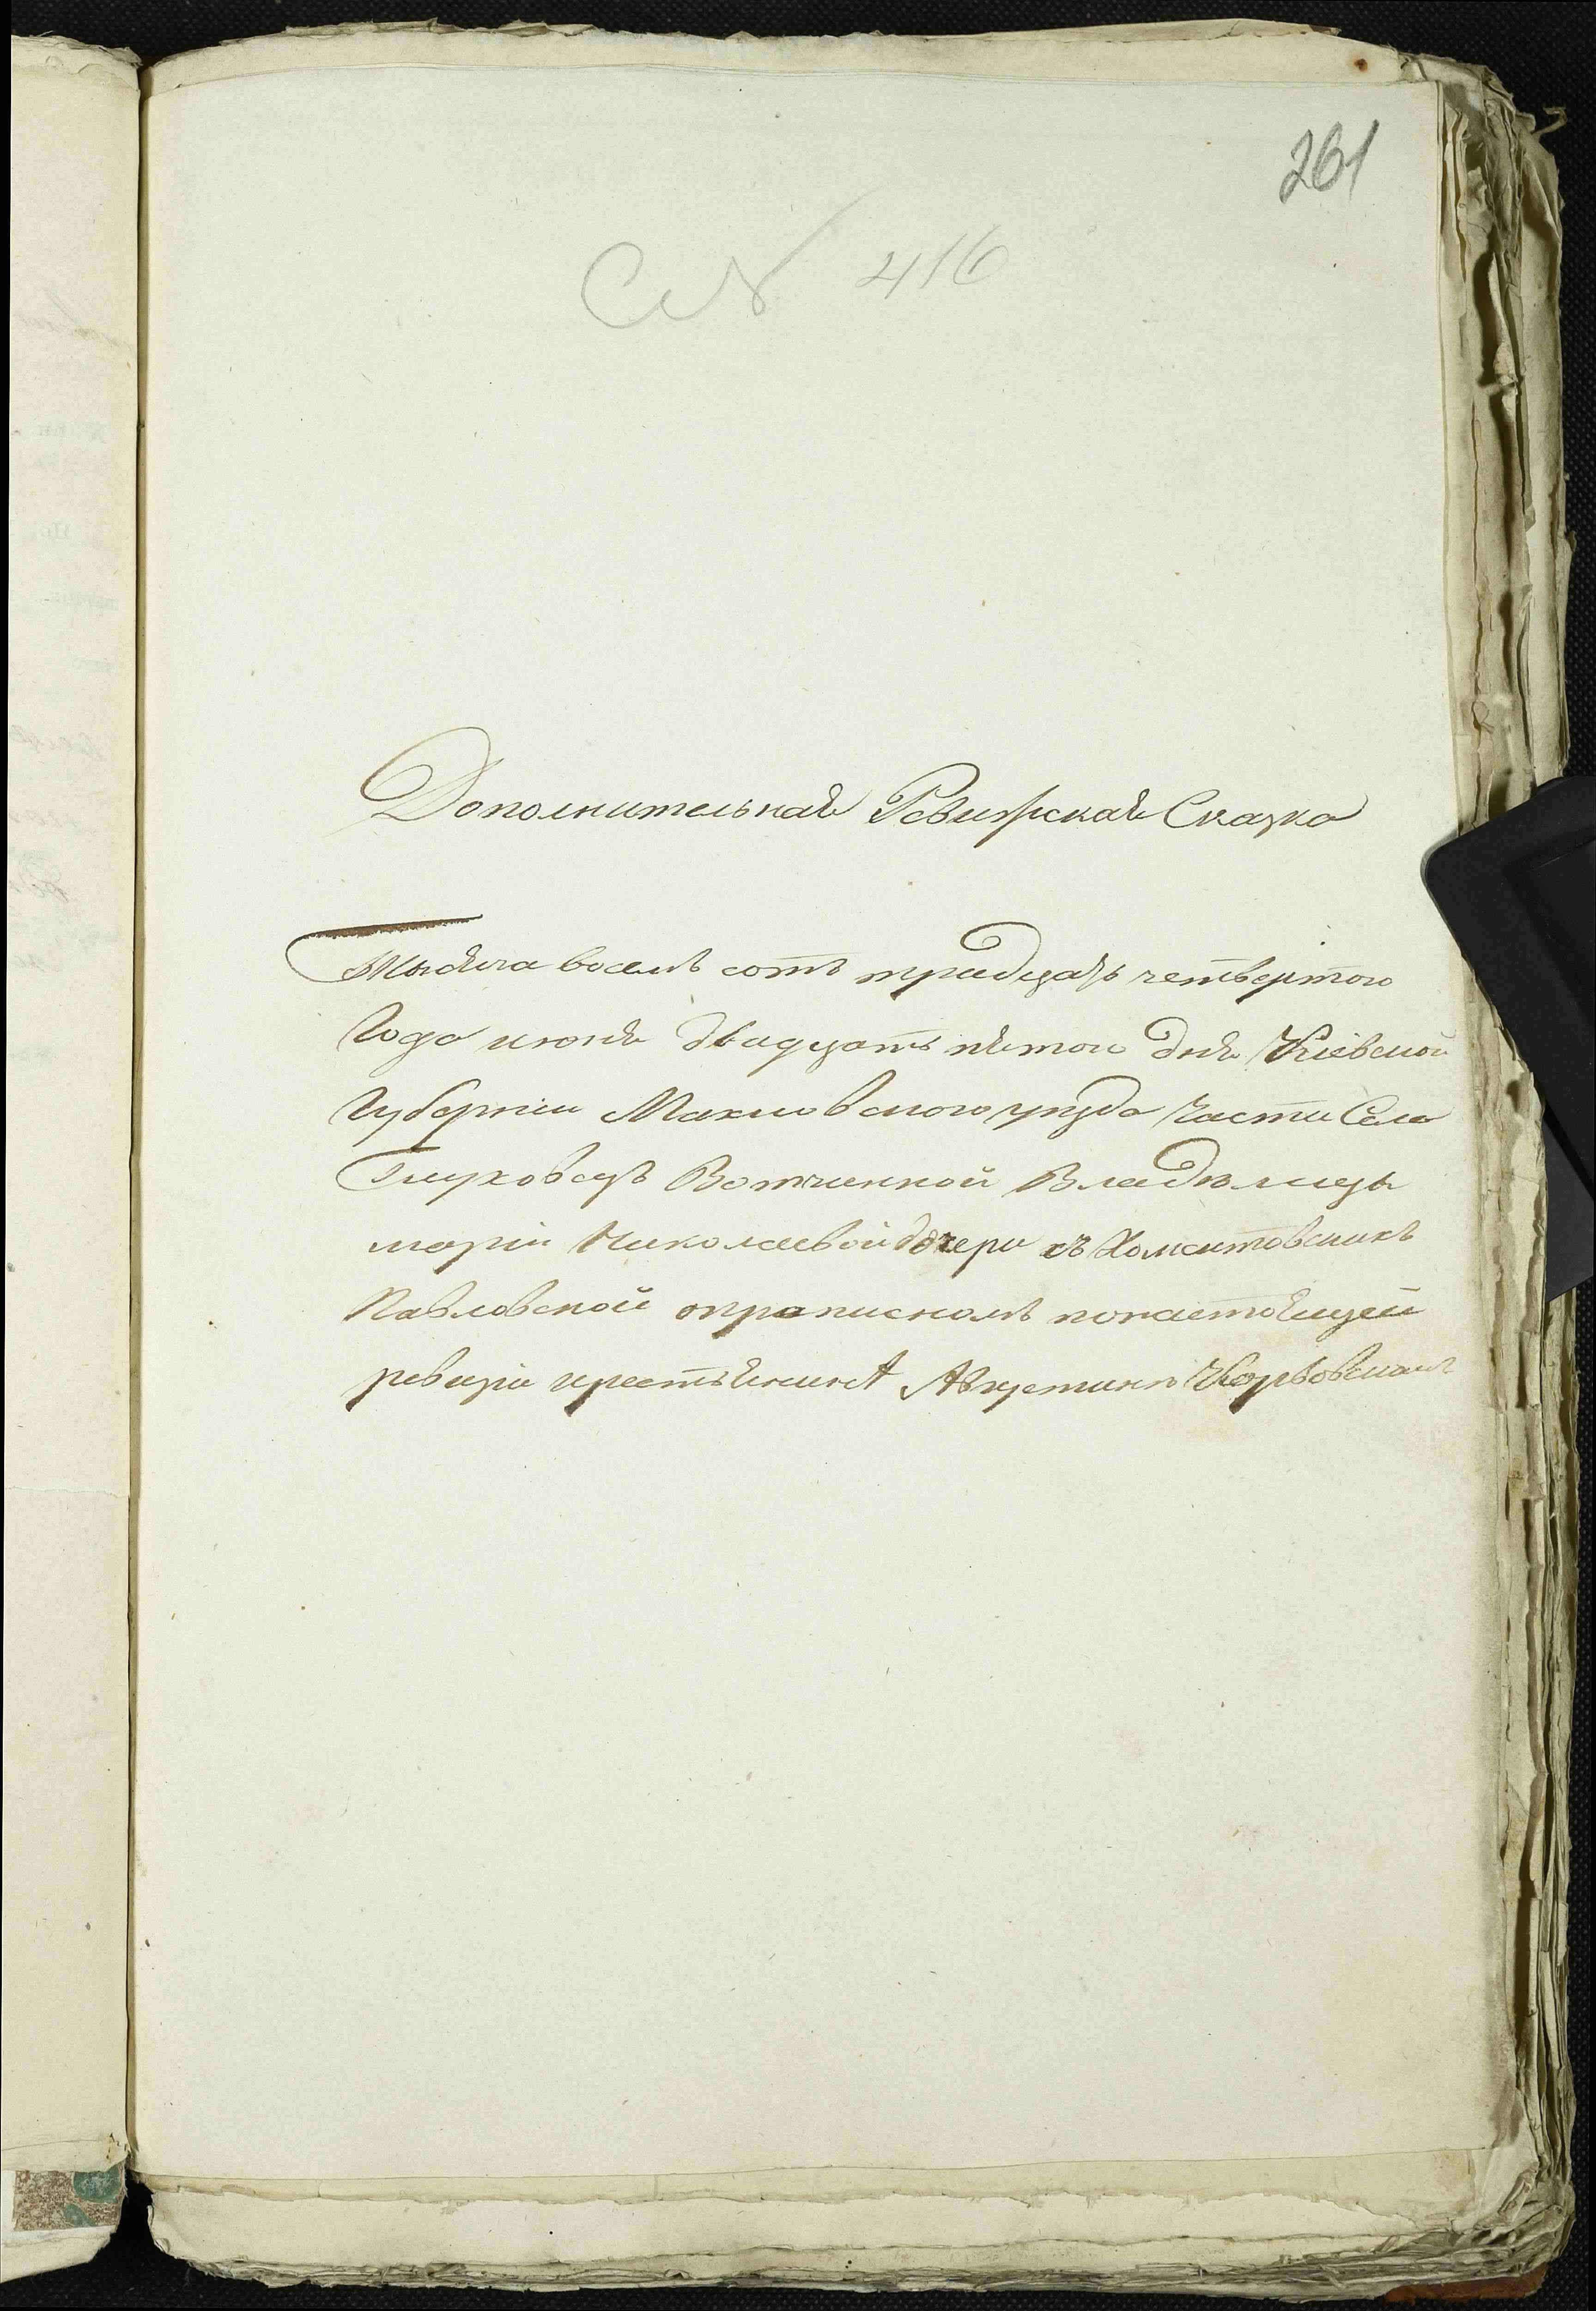 261
№ 416
Дополнительная Ревизская Сказка
Тысяча восемь сотъ тридцать четвертого
Года июня двадцать пятого дня Кіевской
Губерніи Махновского уѣзда части Села
Глуховецъ Вотчинной Владѣлицы
маріи Николаевой дочери съ Хоментовскихъ
Павловской опрописномъ понастоящей
ревизіи крестьянинѣ Августинѣ